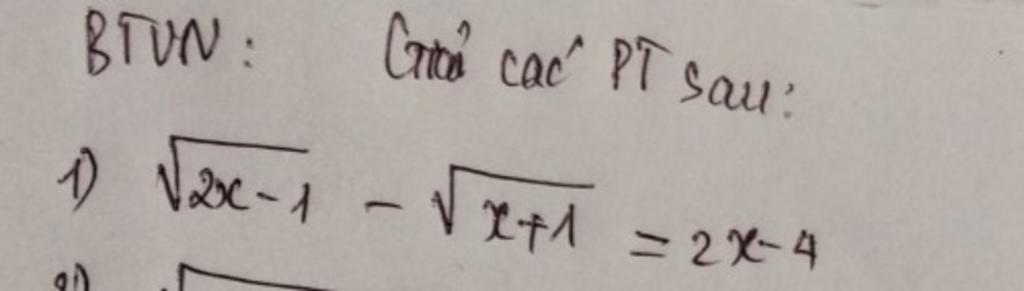 BTVN: Giải các PT sau:
1) √(2x-1) - √(x+1) = 2x-4
2)